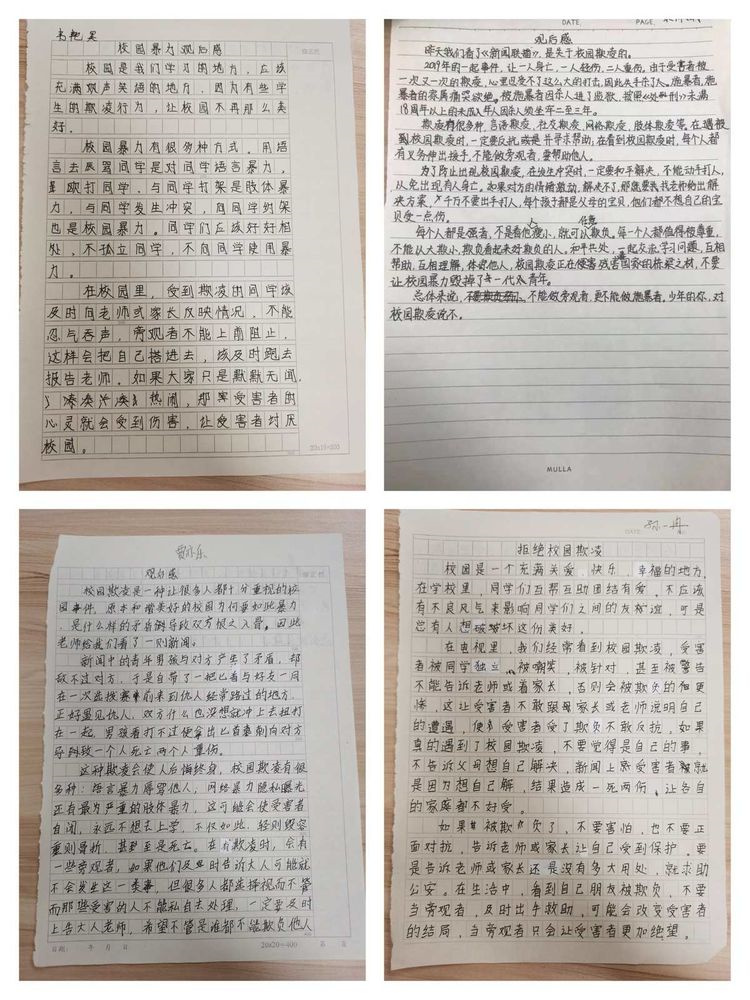 校园暴力观后感
校园是我们学习的地方,应该
充满欢声笑语的地方,因为有些学
生的欺凌行为,让校园不再那么美
好。
校园暴力有很多种方式,用语
言去辱骂同学是对同学语言暴力,
殴打同学、与同学打架是肢体暴
力,与同学发生冲突,向同学约架
也是校园暴力。同学们应该好好相
处,不孤立同学,不向同学使用暴
力。
在校园里,受到欺凌出同学该
及时向老师或家长反映情况,不能
忍气吞声,旁观者不能上前阻止,
这样会把自己搭进去,该及时跑去
报告老师。如果大家只是默默无闻,
凑凑热闹,那受害者的
心灵就会受到伤害,让受害者讨厌
校园。
20x15=300
DATE.
PAGE.
观后感
昨天我们看了《新闻联播》,是关于校园欺凌的。
2019年的一起事件,让一人身亡,一人轻伤,二人重伤。由于受害者被
一次又一次的欺凌,心里也受不了这么大的打击,因此失手杀了人。施暴者,施
暴者的家属痛哭欲绝。被施暴者因杀人进了监狱,按照
18周年以上的未成年人因杀人须坐牢二至三年。
欺凌有很多种,言语欺凌,社交欺凌,网络欺凌,肢体欺凌等。在遇被
到校园欺凌时,一定要反抗,或是寻求帮助,在看到校园欺凌时,每个人都
有义务伸出援手,不能做旁观者,要帮助他人。
为了防止出现校园欺凌,在发生冲突时,一定要和平解决,不能动手打人,
从免出现有人身亡。如果对方的情绪激动,解决不了,那就要找老师给出解
决方案,千万不要出手打人,每个孩子都是父母的宝贝,他们都不想自己的宝
贝受一点伤。
每个人都是强者,不是看他人瘦小,就可以任意欺负。每一个人都值得被尊重,
不能以大欺小,欺负看起来好欺负的人。和平共处,一起交流学习问题,互相
帮助,互相理解,体谅他人,校园欺凌正在侵害残害国家的栋梁之材,不要
让校园暴力毁掉了每一代的青年。
总体来说,不能做旁观者,更不能做施暴者。少年的你,对
校园欺凌说不。
MULLA
观后感
校园欺凌是一种让很多人都十分重视的校
园事件,原本和谐美好的校园为何要如此暴力
,是什么样的矛盾能导致双方恨之入骨。因此
老师给我们看了一则新闻。
新闻中的青年男孩与对方产生了矛盾,却
敌不过对方,于是自带了一把匕首与好友一同
在一次选拔赛前来到仇人经常路过的地方,
正好遇见仇人,双方什么也没想就冲上去扭打
在一起,男孩看打不过便拿出匕首刺向对方
导致一个人死亡两个人重伤。
这种欺凌会使人后悔终身,校园欺凌有很
多种:语言暴力辱骂他人,网络暴力隐私曝光
还有最为严重的肢体暴力,这可能会使受害者
自闭,永远不想去上学,不仅如此,轻则毁容
重则骨折,甚至是死亡。在欺凌时,会有
一些旁观者,如果他们及时告诉大人可能就
不会发生这一类事,但很多人都选择视而不管
而那些受害的人不能私自去处理,一定要及时
上告大人老师,希望不管是谁都不能欺负他人
日期: 年 月 日
20x20=400
第 页
DATE
孙一丹
拒绝校园欺凌
校园是一个充满关爱、快乐、幸福的地方,
在学校里,同学们互帮互助团结有爱,不应该
有不良风气来影响同学们之间的友好谊,可是
总有人想破坏这份美好。
在电视里,我们经常看到校园欺凌,受害
者被同学独立、被嘲笑,被针对,甚至被警告
不能告诉老师或着家长,否则会被欺负的更
惨,这让受害者不敢跟母家长或老师说明自己
的遭遇,使受害者受了欺负不敢反抗,如果
真的遇到了校园欺凌,不要觉得是自己的事,
不告诉父母想自己解决,新闻上受害者就
是因为想自己解,结果造成一死两伤,让各自
的家庭都不好受。
如果被欺负了,不要害怕,也不要正
面对抗,告诉老师或家长让自己受到保护,要
是告诉老师或家长还是没有多大用处,就求助
公安。在生活中,看到自己朋友被欺负,不要
当旁观者,及时出手救助,可能会改变受害者
的结局,当旁观者只会让受害者更加绝望。